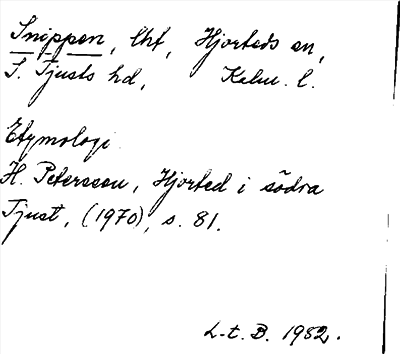 Snippen, lht, Hjorteds sn,
S. Tjusts hd, Kalm. l.
Etymologi
H. Petersson, Hjorted i södra
Tjust, (1970), s. 81.
L-t. B. 1982.